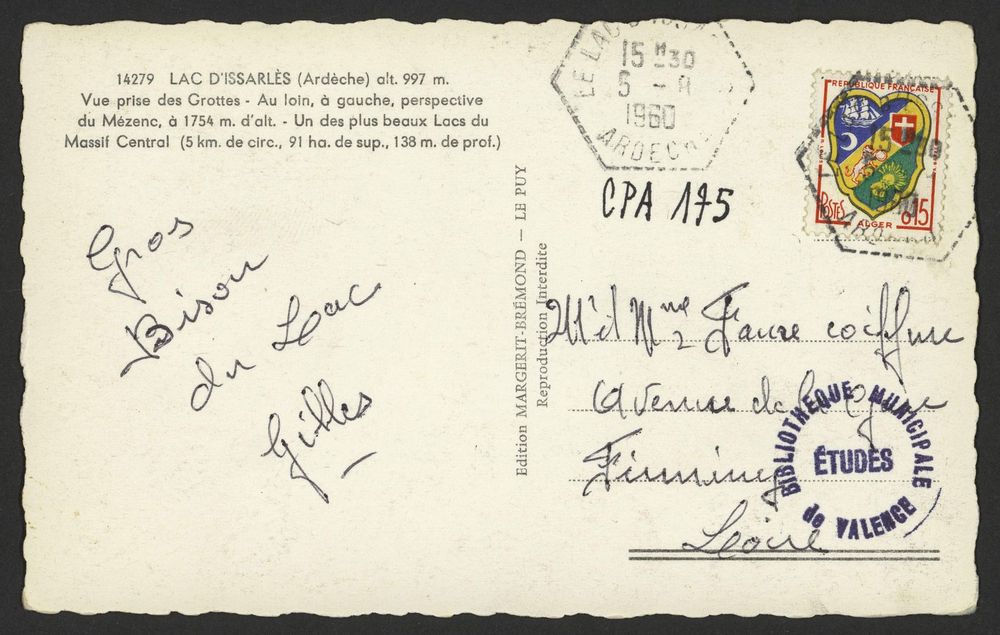 14279 LAC D'ISSARLÈS (Ardèche) alt. 997 m.
Vue prise des Grottes - Au loin, à gauche, perspective
du Mézenc, à 1754 m. d'alt. - Un des plus beaux Lacs du
Massif Central (5 km. de circ., 91 ha. de sup., 138 m. de prof.)
Gros
Bisou
du Lac
Gilles
Edition MARGERIT-BRÉMOND - LE PUY
Reproduction Interdite
LE LAC
15 H 30
1960
ARDECHE
REPUBLIQUE FRANÇAISE
POSTES 0.15
ALGER
CPA 175
M et Mme Faure coiffure
Avenue de la Gare
Firminy
Loire
BIBLIOTHEQUE MUNICIPALE
ÉTUDES
de VALENCE